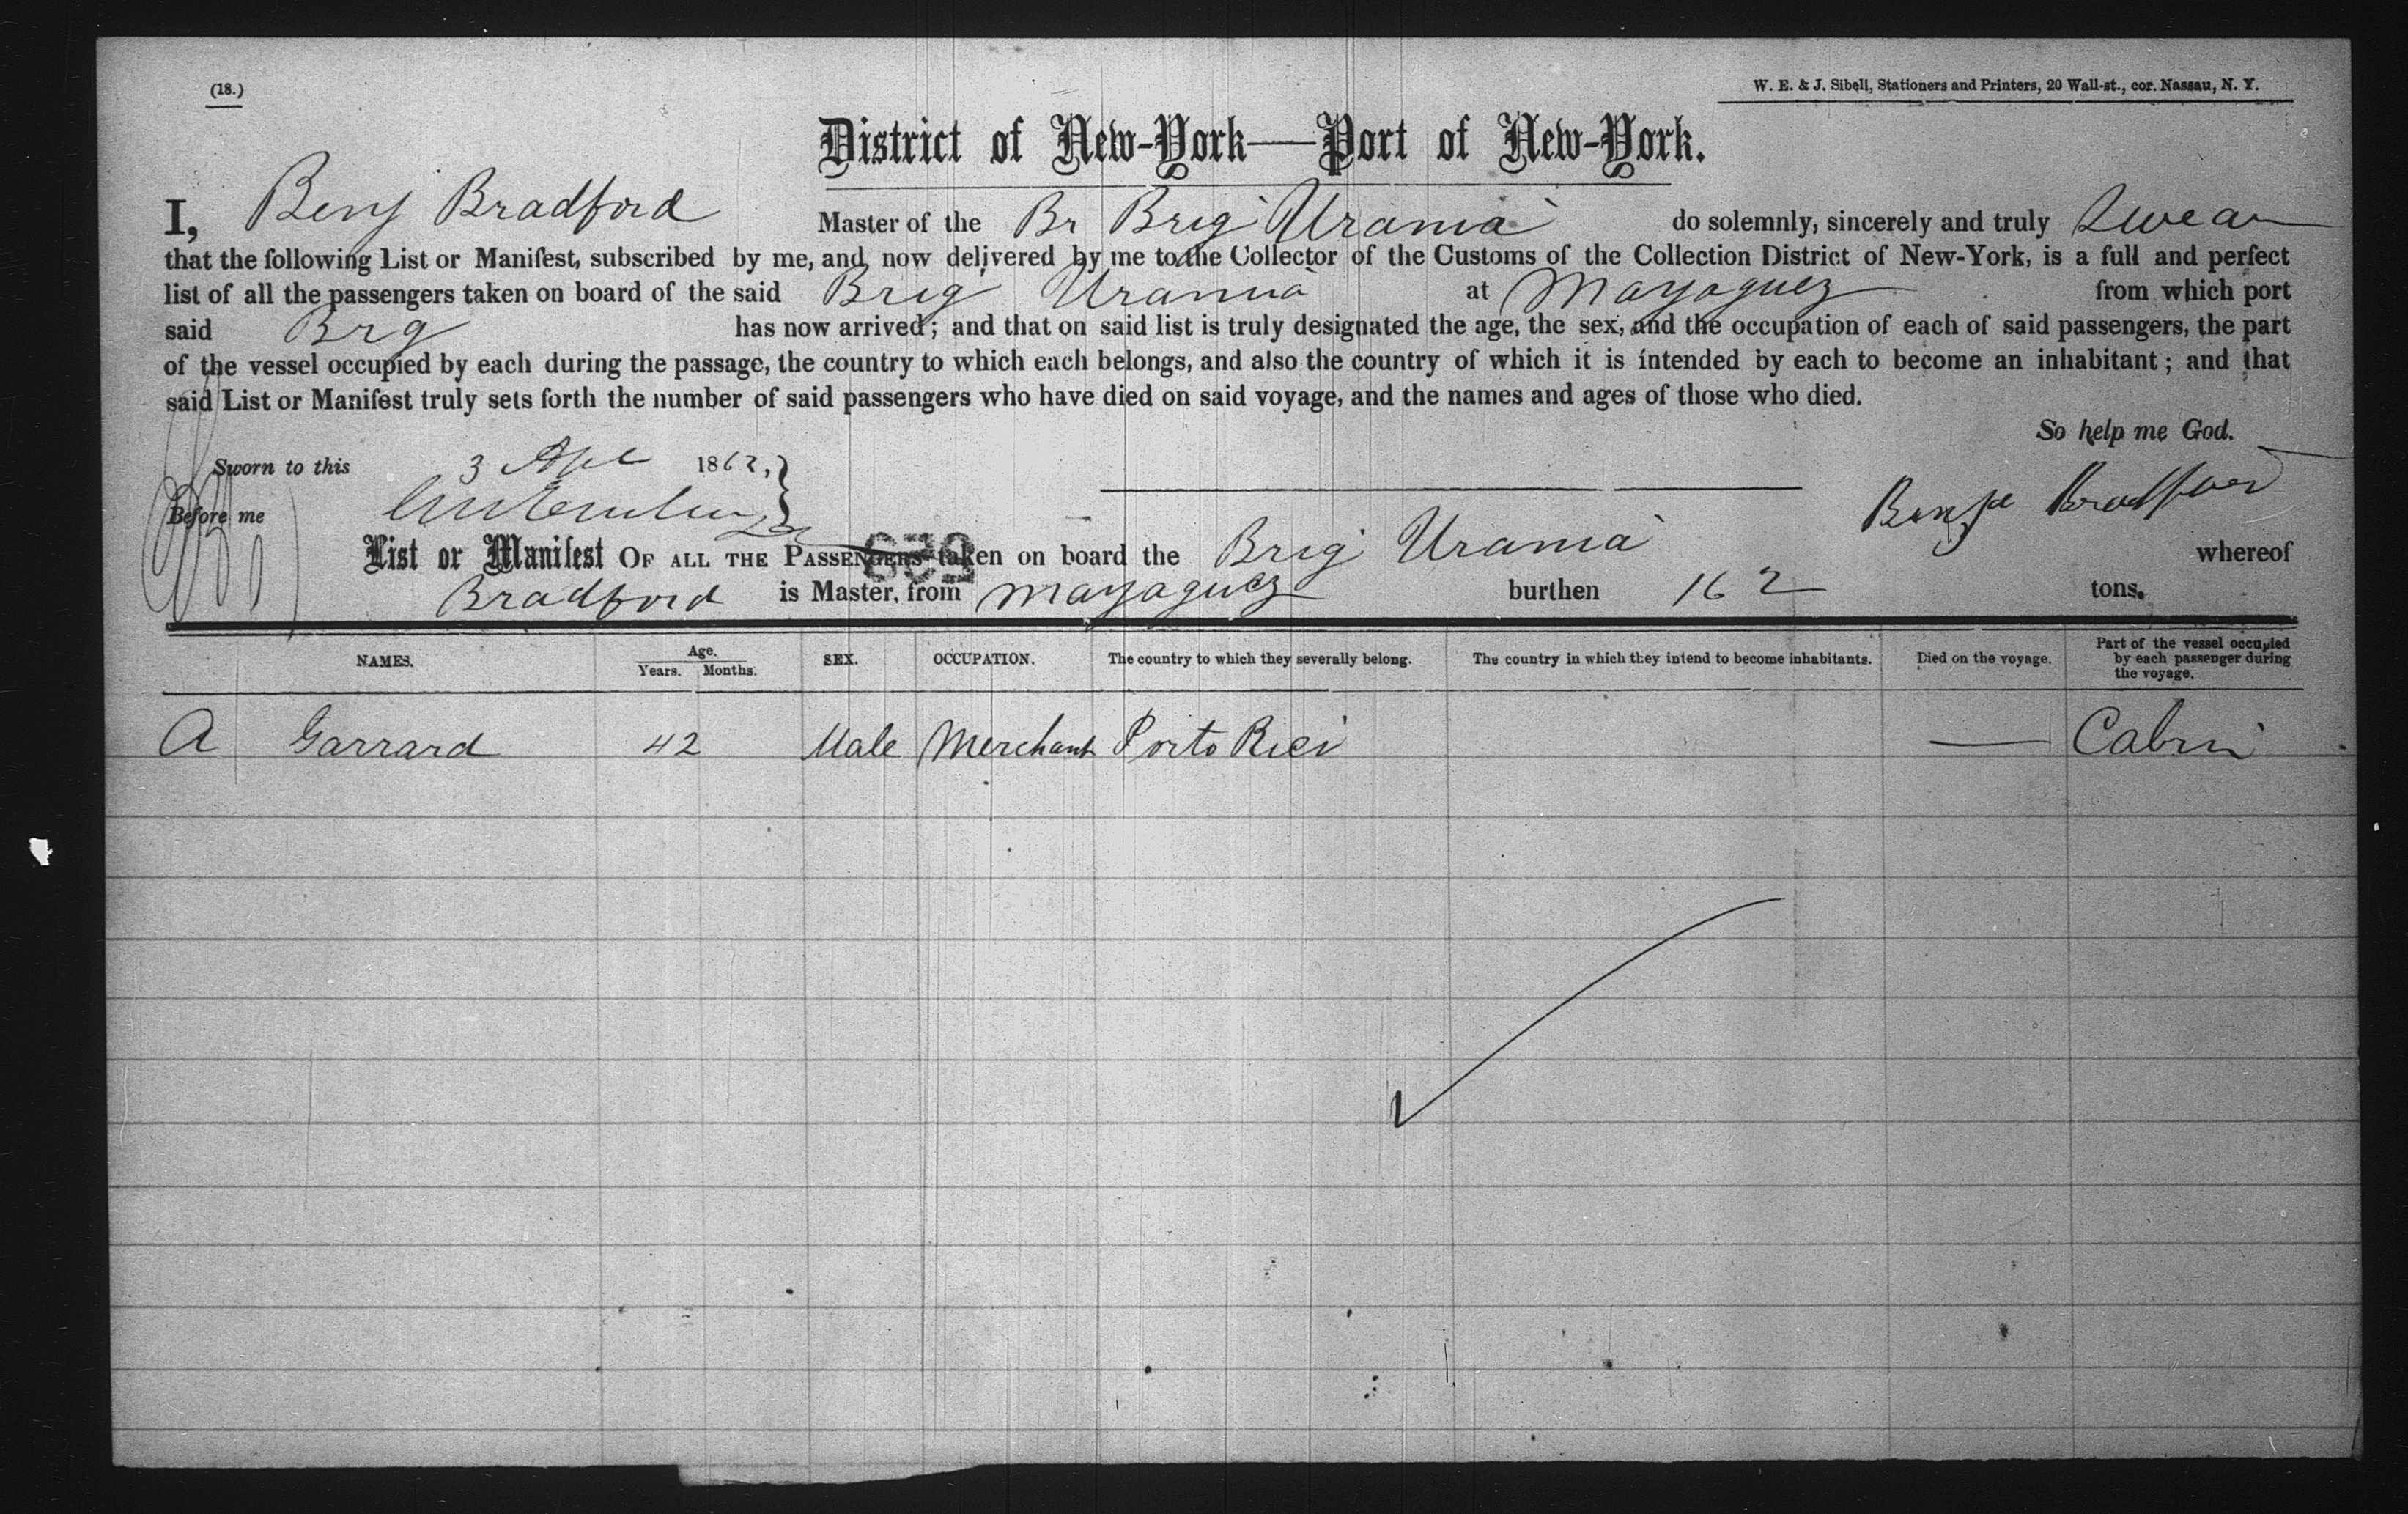 (18.)
W. E. & J. Sibell, Stationers and Printers, 20 Wall-st., cor. Nassau, N. Y.
District of New-York—Port of New-York.
I, Benj Bradford Master of the Br Brig Urania do solemnly, sincerely and truly Swear
that the following List or Manifest, subscribed by me, and now delivered by me to the Collector of the Customs of the Collection District of New-York, is a full and perfect
list of all the passengers taken on board of the said Brig Urania at Mayaguez from which port
said Brg has now arrived; and that on said list is truly designated the age, the sex, and the occupation of each of said passengers, the part
of the vessel occupied by each during the passage, the country to which each belongs, and also the country of which it is intended by each to become an inhabitant; and that
said List or Manifest truly sets forth the number of said passengers who have died on said voyage, and the names and ages of those who died.
So help me God.
Sworn to this 3 Apl 1862,
Before me
Benj Bradford
List or Manifest OF ALL THE PASSENGERS taken on board the Brig Urania whereof
Bradford is Master, from Mayaguez burthen 162 tons.
NAMES. Age. Years. Months. SEX. OCCUPATION. The country to which they severally belong. The country in which they intend to become inhabitants. Died on the voyage. Part of the vessel occupied by each passenger during the voyage.
A Garrard 42 Male Merchant Porto Rico — Cabin